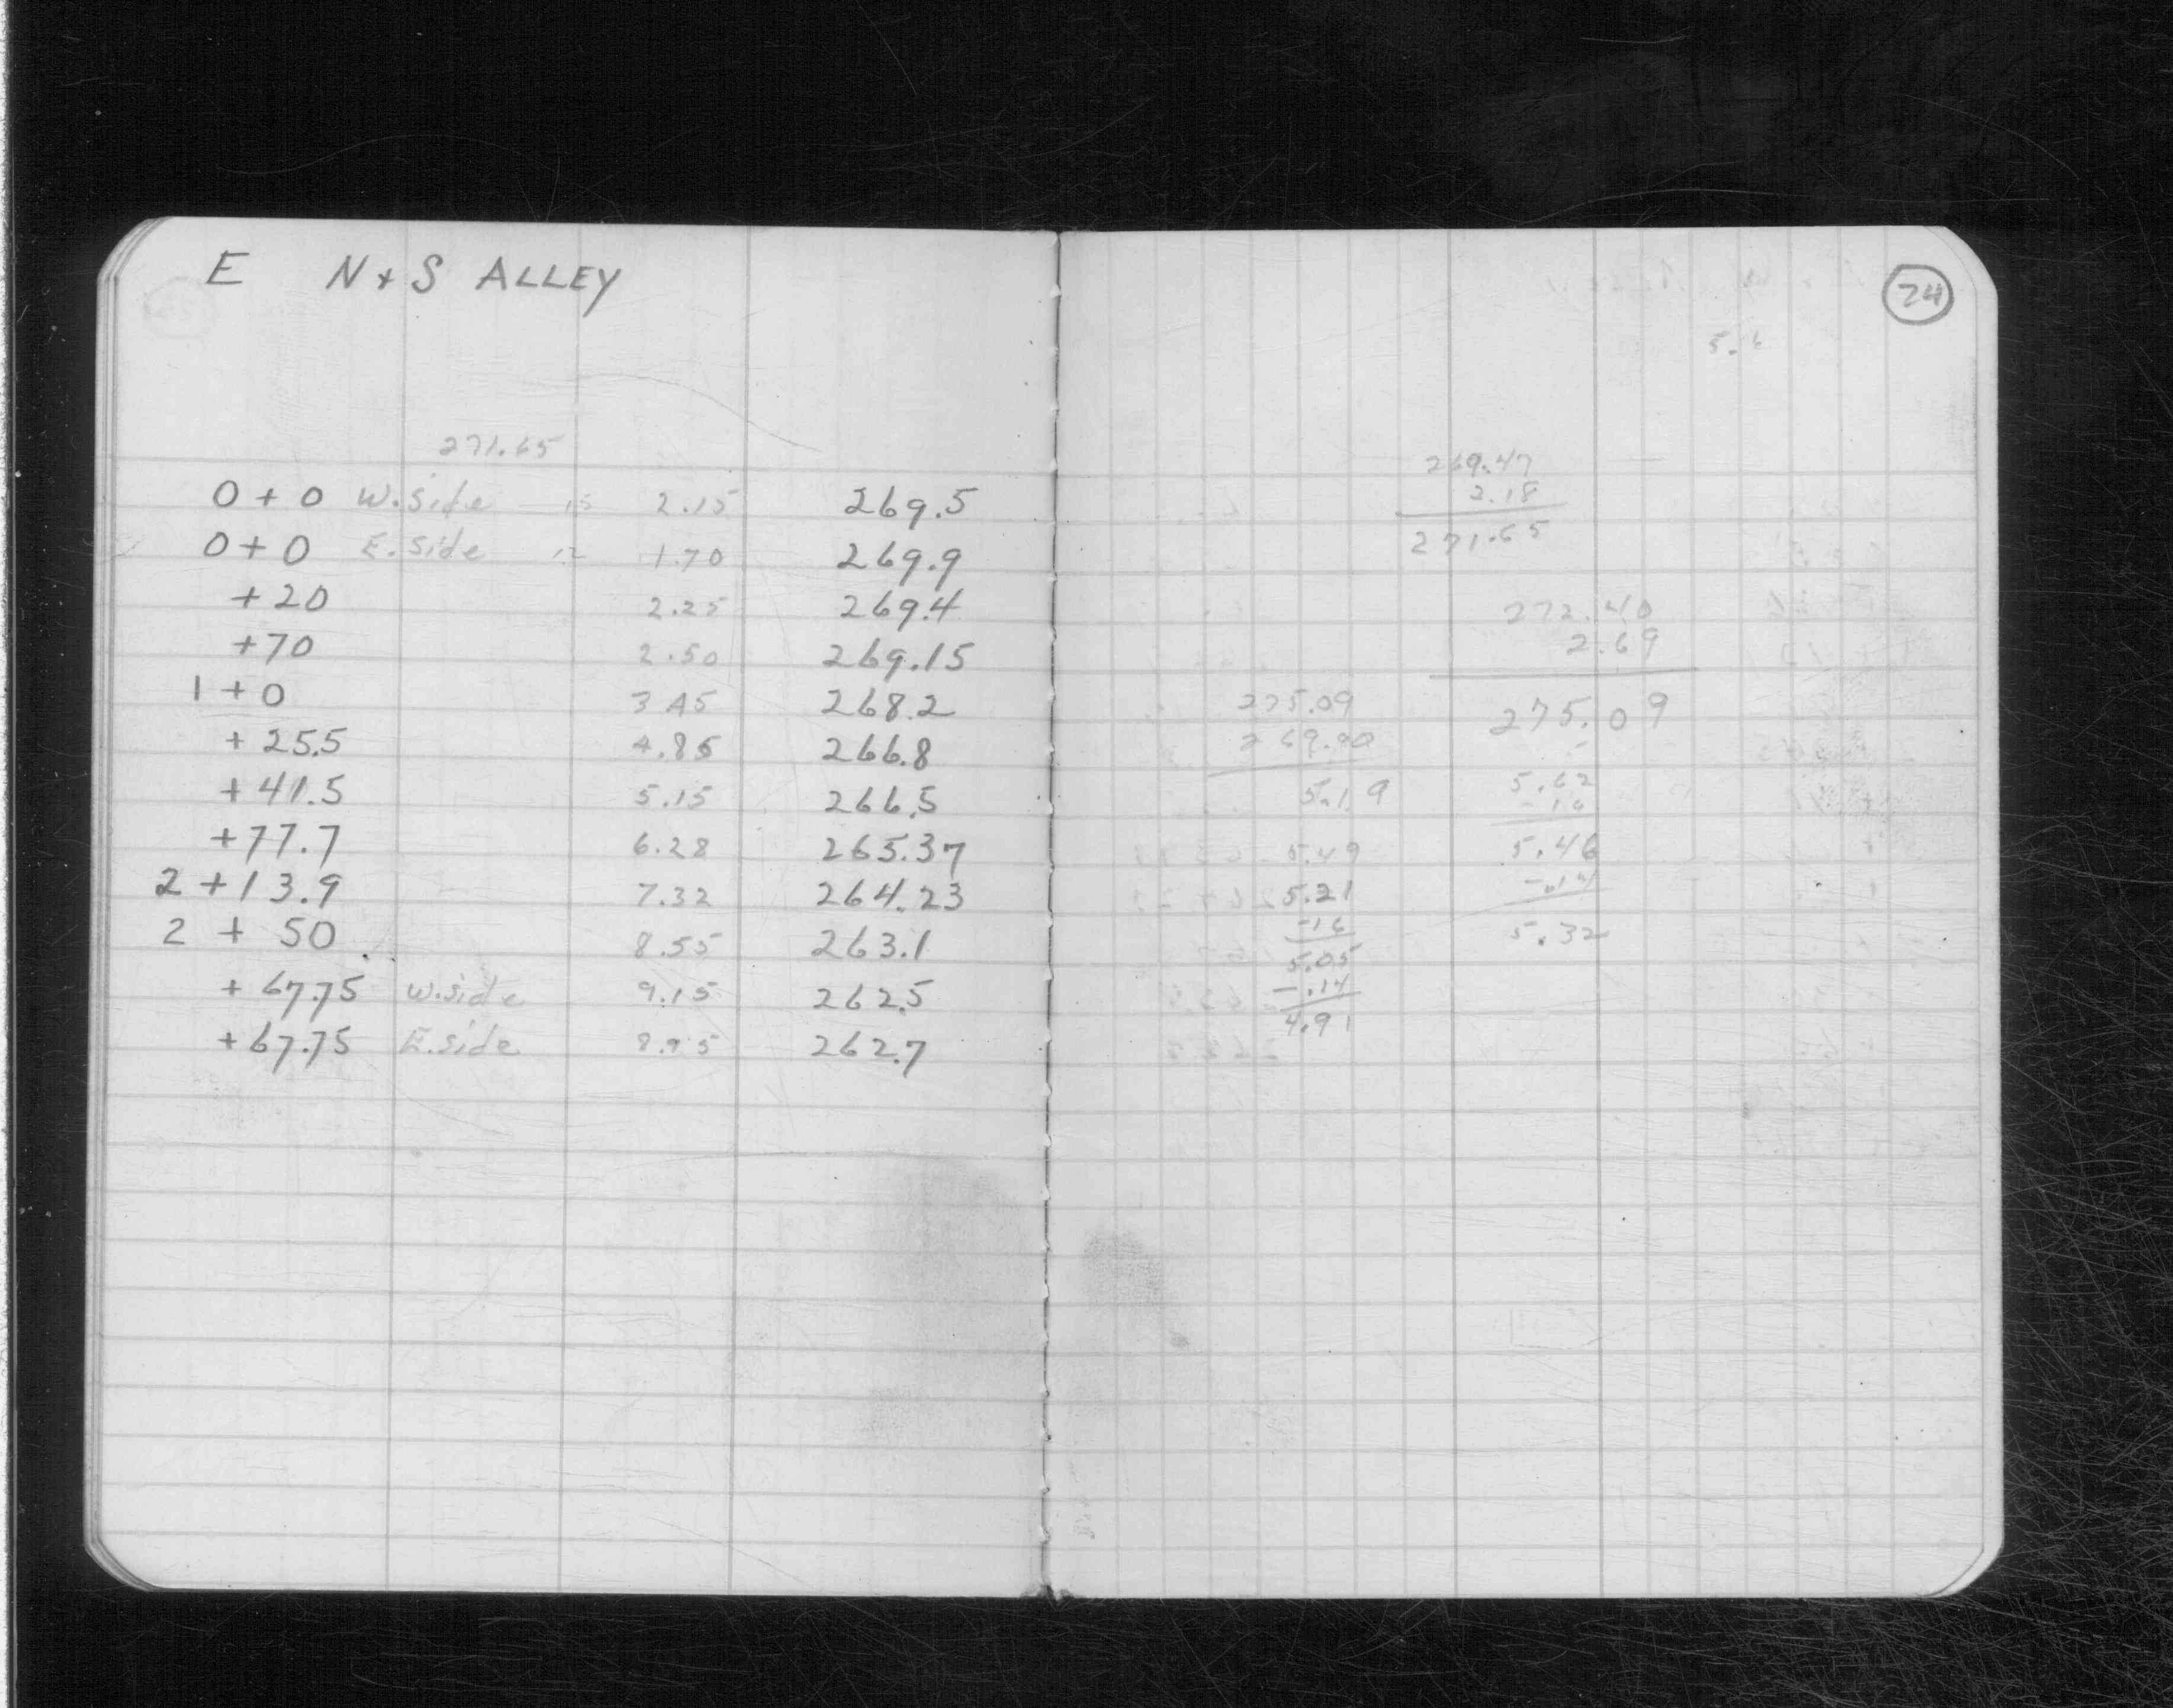 E N + S ALLEY
271.65
0 + 0 W. Side 15 2.15 269.5
0 + 0 E. Side 12 1.70 269.9
+ 20 2.25 269.4
+ 70 2.50 269.15
1 + 0 3.45 268.2
+ 25.5 4.85 266.8
+ 41.5 5.15 266.5
+ 77.7 6.28 265.37
2 + 13.9 7.32 264.23
2 + 50 8.55 263.1
+ 67.75 W. side 9.15 262.5
+ 67.75 E. side 8.95 262.7
24
269.47
2.18
271.65
272.40
2.69
275.09
275.09
269.90
5.19
5.49
5.21
-16
5.05
-.14
4.91
5.62
-16
5.46
-.14
5.32